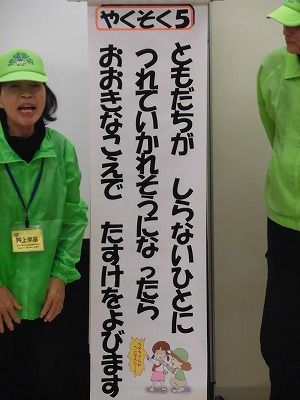 やくそく5
ともだちが　しらないひとに
つれていかれそうになったら
おおきなこえで　たすけをよびます